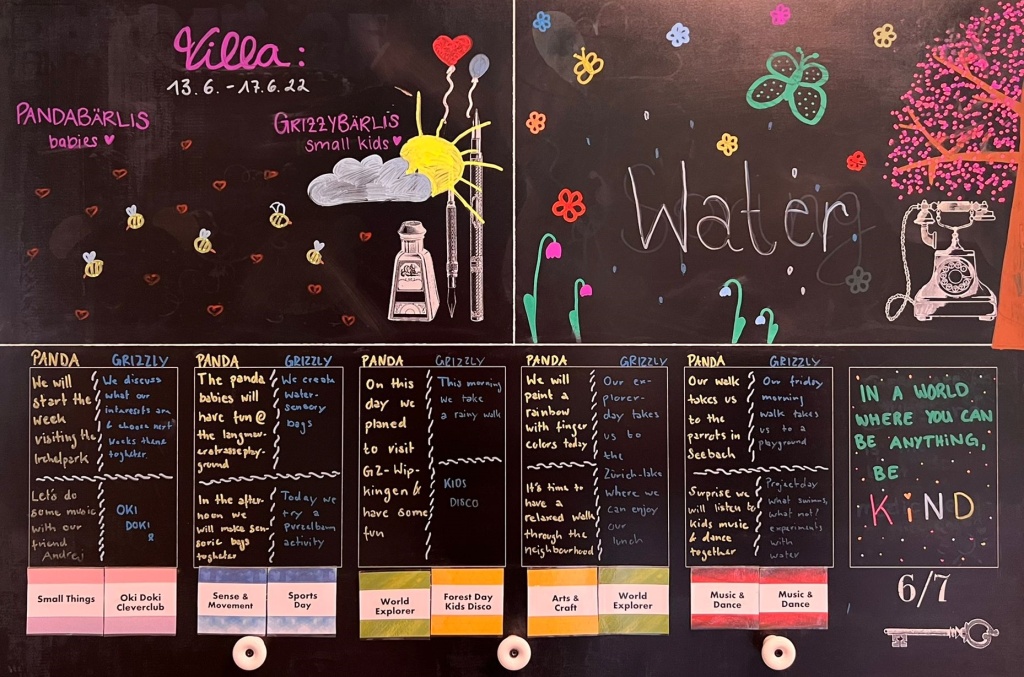 Villa:
13.6. - 17.6.22
PANDABÄRLIS
babies
GRIZZYBÄRLIS
small kids
Water
PANDA
We will
start the
week
visiting the
Irchelpark
Let's do
some music
with our
friend
Andrej
GRIZZLY
We discuss
what our
interests are
& choose next
weeks theme
togheter
OKI
DOKI
PANDA
The panda
babies will
have fun @
the langmau-
play-
ground
In the after-
noon we
will make sen-
soric bags
togheter
GRIZZLY
We create
water-
sensory
bags
Today we
try a
purzelbaum
activity
PANDA
On this
day we
planed
to visit
GZ-Wip-
kingen &
have some
fun
GRIZZLY
This morning
we take
a rainy walk
KIDS
DISCO
PANDA
We will
paint a
rainbow
with finger
colors today
It's time to
have a
relaxed walk
through the
neighbourhood
GRIZZLY
Our ex-
plorer-
day takes
us to
the
Zürich-lake
where we
can enjoy
our
lunch
PANDA
Our walk
takes us
to the
parrots in
Seebach
Surprise we
will listen to
kids music
& dance
together
GRIZZLY
Our friday
morning
walk takes
us to a
playground
Projectday
what swims,
what not?
experiments
with
water
IN A WORLD
WHERE YOU CAN
BE ANYTHING,
BE
KiND
Small Things
Oki Doki
Cleverclub
Sense &
Movement
Sports
Day
World
Explorer
Forest Day
Kids Disco
Arts &
Craft
World
Explorer
Music &
Dance
Music &
Dance
6/7